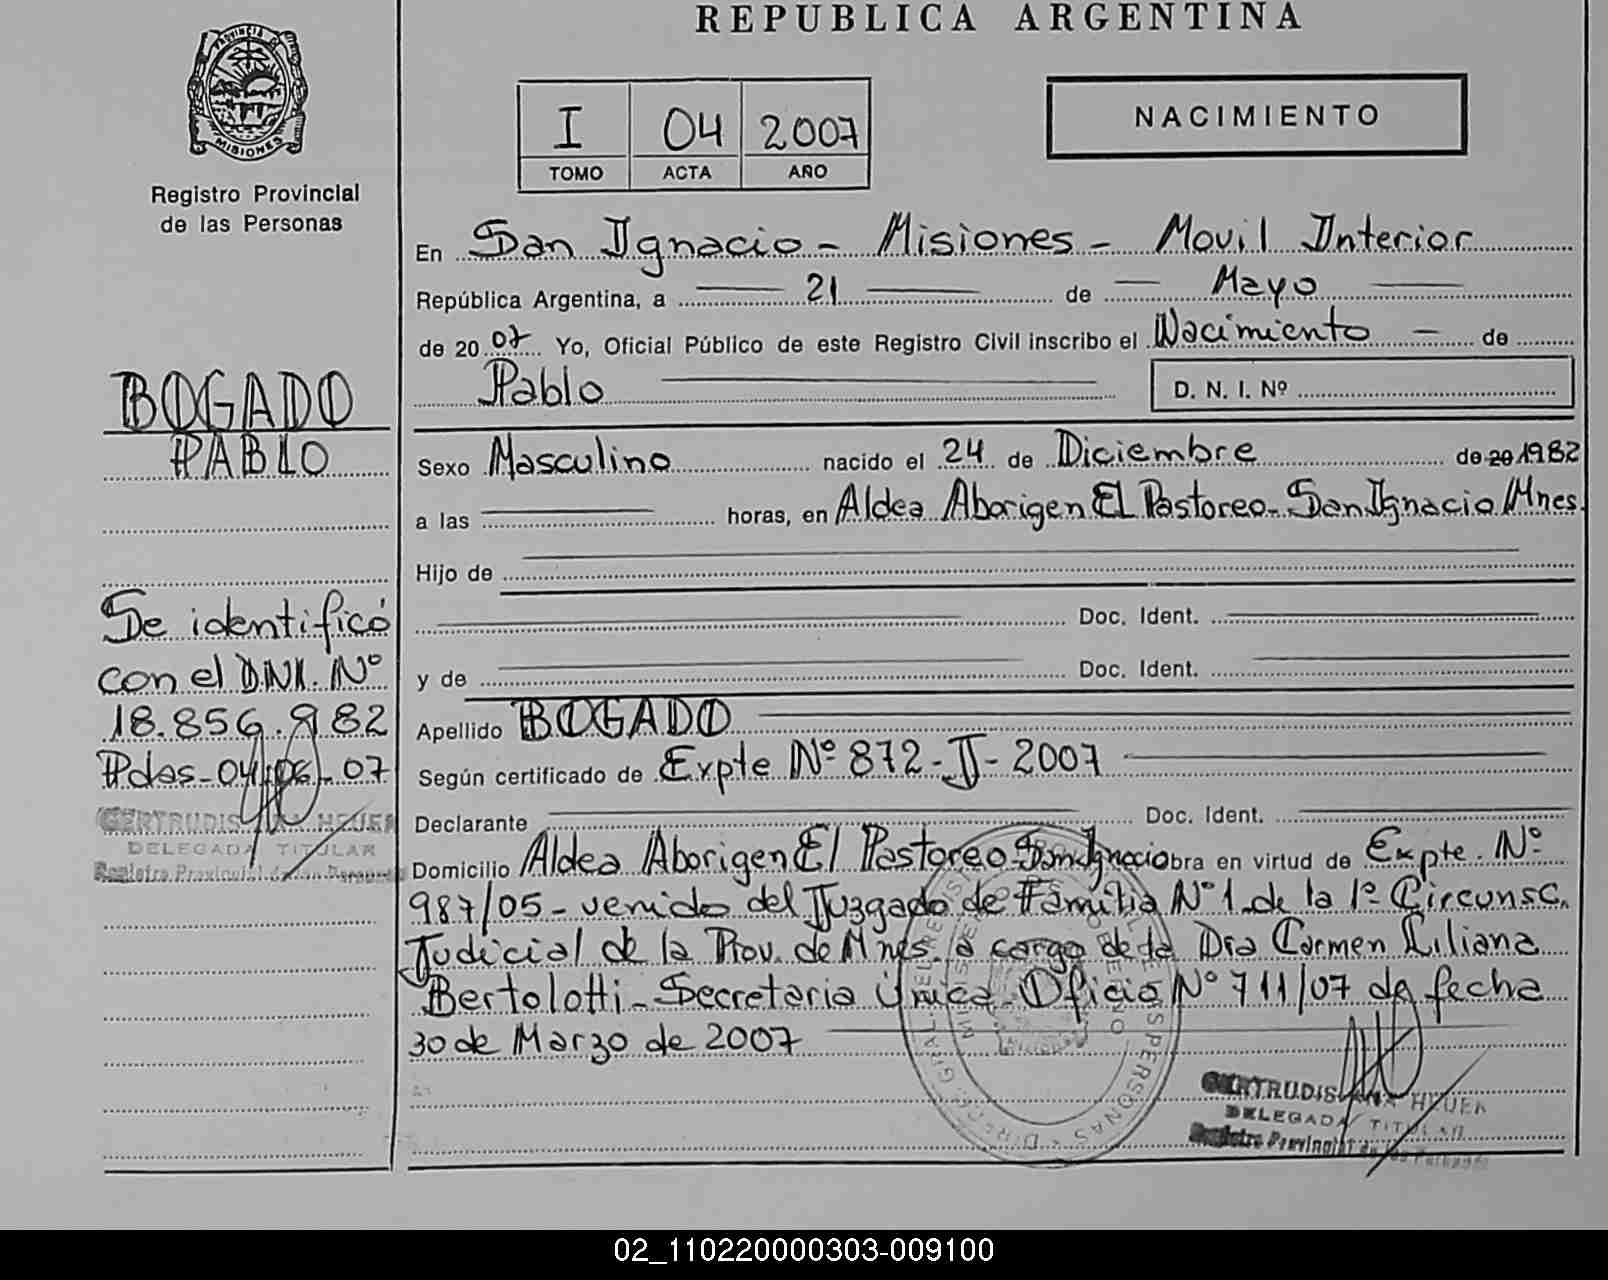 REPUBLICA ARGENTINA
PROVINCIA DE
MISIONES
Registro Provincial
de las Personas
I 04 2007
TOMO ACTA AÑO
NACIMIENTO
En San Ignacio - Misiones - Movil Interior
República Argentina, a 21 de Mayo
de 2007 Yo, Oficial Público de este Registro Civil inscribo el Nacimiento - de
Pablo D. N. I. Nº
BOGADO
PABLO
Sexo Masculino nacido el 24 de Diciembre de 20 1982
a las horas, en Aldea Aborigen El Pastoreo - San Ignacio/Mnes.
Hijo de
Doc. Ident.
y de Doc. Ident.
Apellido BOGADO
Según certificado de Expte Nº 872-J-2007
Declarante Doc. Ident.
Domicilio Aldea Aborigen El Pastoreo San Ignacio obra en virtud de Expte. Nº
987/05 - venido del Juzgado de Familia Nº 1 de la 1º Circunsc.
Judicial de la Prov. de Mnes. a cargo de la Dra Carmen Liliana
Bertolotti - Secretaria Única - Oficio Nº 711/07 de fecha
30 de Marzo de 2007
Se identificó
con el DNI. Nº
18.856.982
Pdas - 04-06-07
GERTRUDIS ANA HEUER
DELEGADA TITULAR
Registro Provincial de las Personas
GERTRUDIS ANA HEUER
DELEGADA TITULAR
Registro Provincial de las Personas
02_110220000303-009100